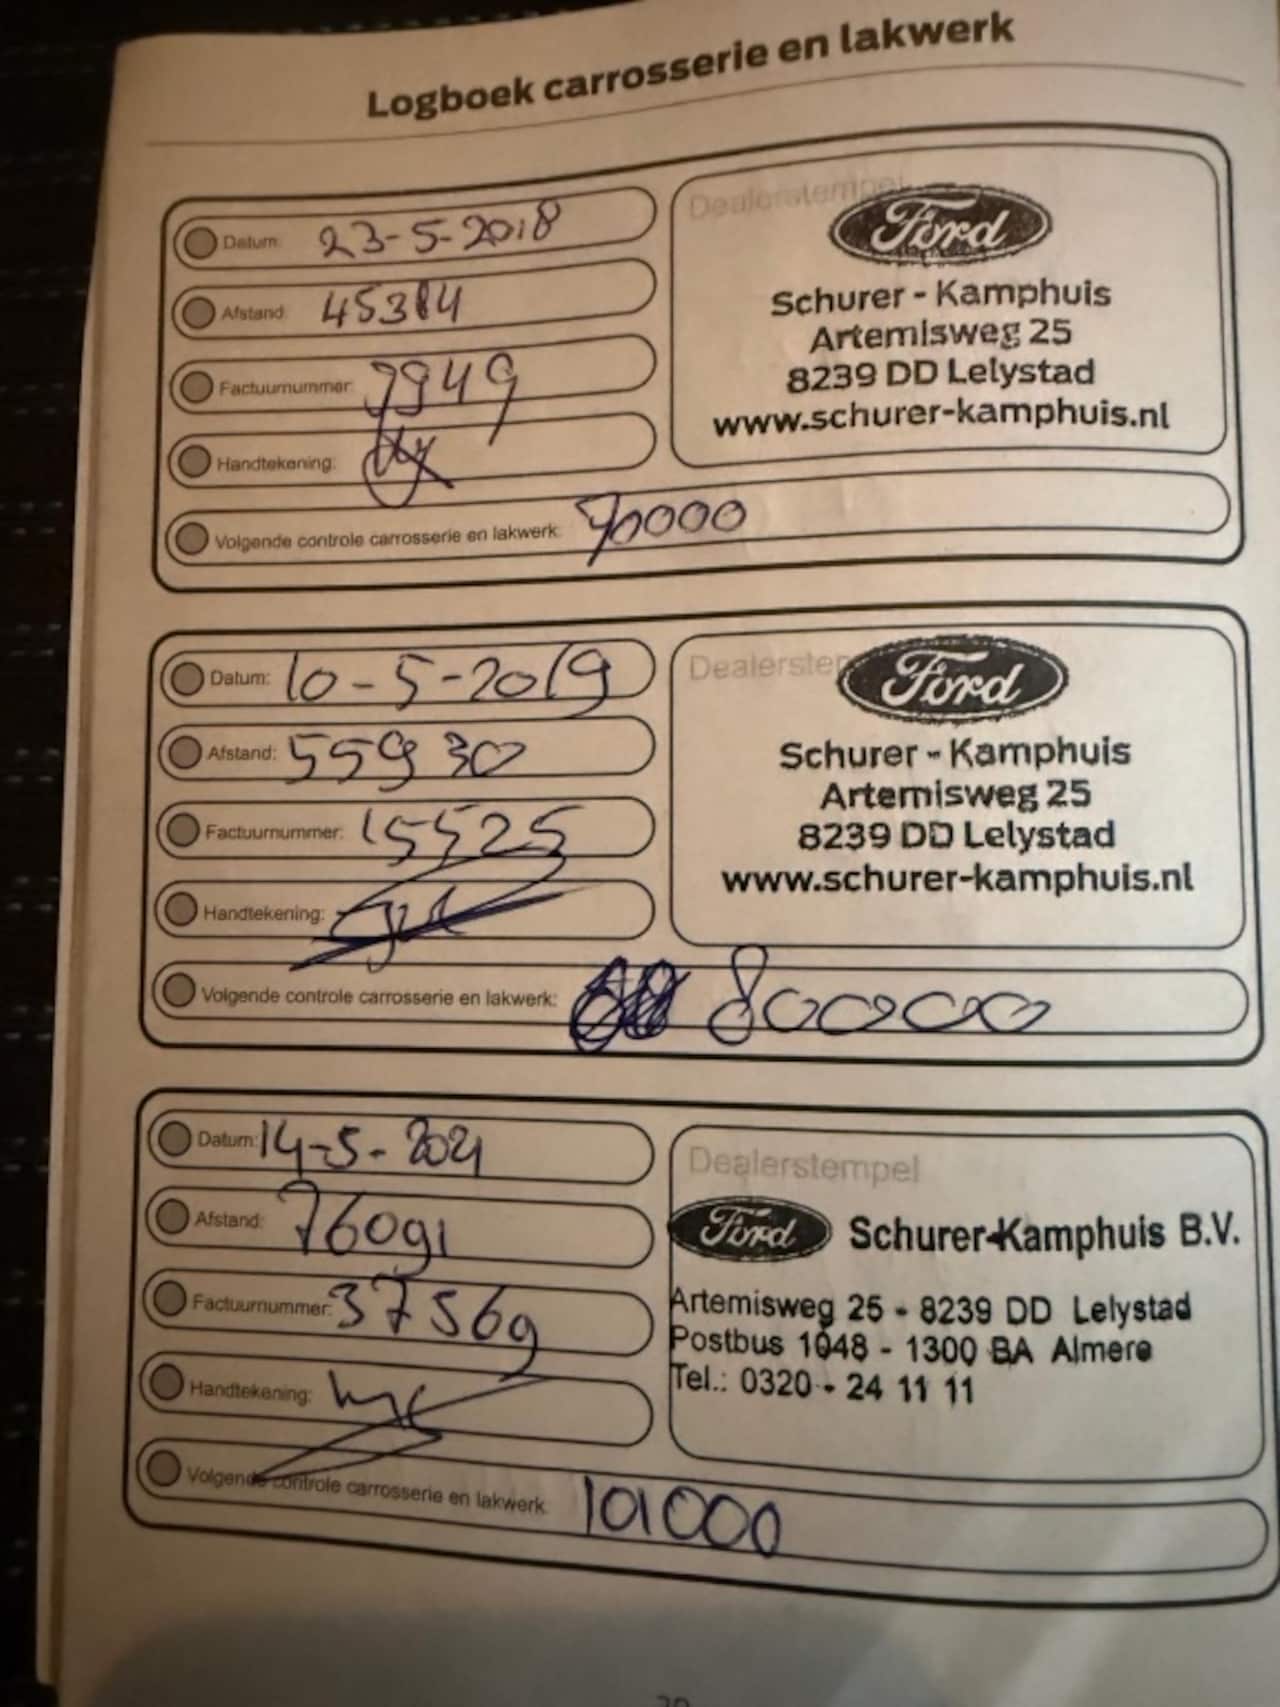 Logboek carrosserie en lakwerk
Datum: 23-5-2018
Afstand: 45384
Factuurnummer: 7949
Handtekening:
Volgende controle carrosserie en lakwerk: 70000
Dealerstempel
Ford
Schurer - Kamphuis
Artemisweg 25
8239 DD Lelystad
www.schurer-kamphuis.nl
Datum: 10-5-2019
Afstand: 55930
Factuurnummer: 15525
Handtekening:
Volgende controle carrosserie en lakwerk: 80000
Dealerstem
Ford
Schurer - Kamphuis
Artemisweg 25
8239 DD Lelystad
www.schurer-kamphuis.nl
Datum: 14-5-2021
Afstand: 76091
Factuurnummer: 37569
Handtekening:
Volgende controle carrosserie en lakwerk: 101000
Dealerstempel
Ford Schurer-Kamphuis B.V.
Artemisweg 25 - 8239 DD Lelystad
Postbus 1048 - 1300 BA Almere
Tel.: 0320 - 24 11 11